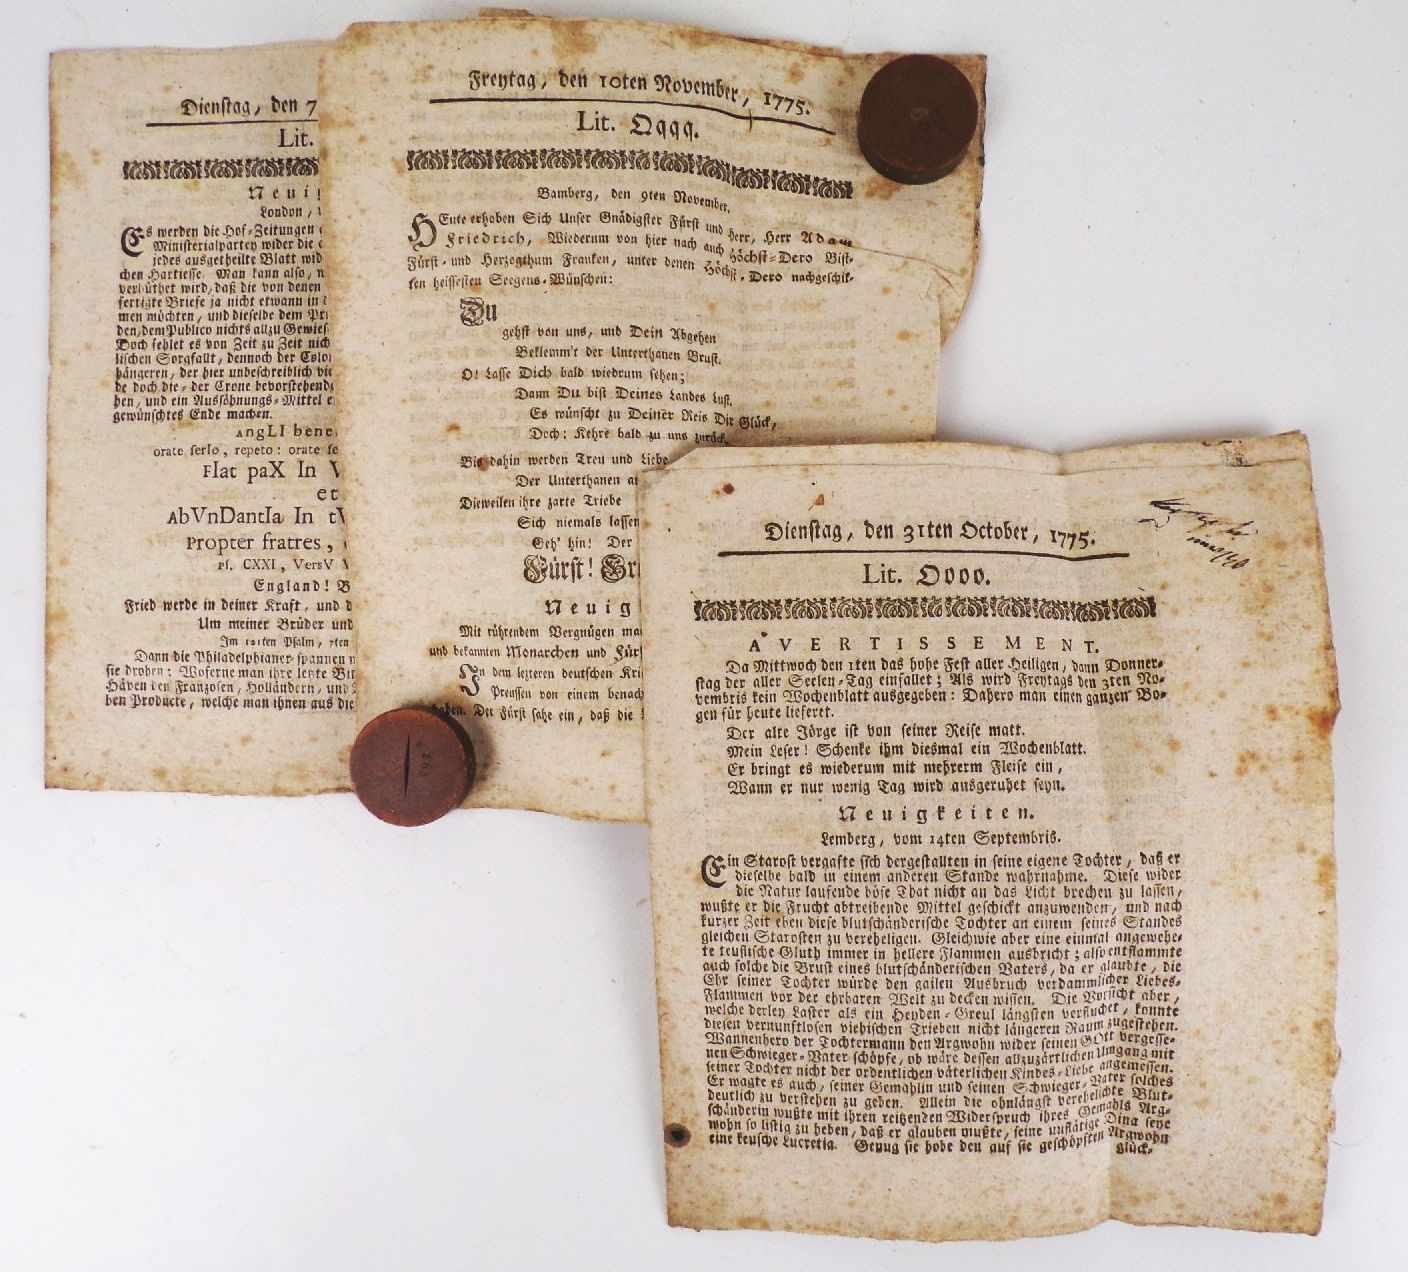 Dienstag, den 7
Lit.
Neuig
London,
Es werden die Hof-Zeitungen
Ministerialpartey wider die
jedes ausgetheilte Blatt wid
chen Hartiesse. Man kann also, n
verhüthet wird, daß die von denen
fertigte Briefe ja nicht etwann in
men möchten, und dieselbe dem Pri
den, dem Publico nichts allzu Gewies
Doch fehlet es von Zeit zu Zeit nich
lischen Sorgfallt, dennoch der Colo
hängeren, der hier unbeschreiblich vie
de doch die-der Crone bevorstehend
hen, und ein Aussöhnungs-Mittel e
gewünschtes Ende machen.
AngLI bene
orate serIo, repeto: orate se
FIat paX In V
et
AbVnDantIa In tV
Propter fratres,
Ps. CXXI, VersV
England! B
Fried werde in deiner Kraft, und d
Um meiner Brüder und
Im 121ten Psalm, 7ten
Dann die Philadelphianer spannen n
sie drohen: Woferne man ihre letzte Bit
Häven den Franzosen, Holländern, und
ben Producte, welche man ihnen aus die
Freytag, den 10ten November, 1775.
Lit. Qqqq.
Bamberg, den 9ten November.
HEute erhoben Sich Unser Gnädigster Fürst und Herr, Herr Adam
Friedrich, Wiederum von hier nach auch Höchst-Dero Bist-
Fürst- und Herzogthum Franken, unter denen Höchst-Dero nachgeschik-
ten heissesten Seegens-Wünschen:
Du
gehst von uns, und Dein Abgehen
Beklemm't der Unterthanen Brust.
O! Lasse Dich bald wiedrum sehen;
Dann Du bist Deines Landes Lust.
Es wünscht zu Deiner Reis Dir Glück,
Doch: Kehre bald zu uns zurück.
Bis dahin werden Treu und Liebe
Der Unterthanen
Dieweilen ihre zarte Triebe
Sich niemals lassen
Geh' hin! Der
Fürst!
Neuig
Mit rührendem Vergnügen ma
und bekannten Monarchen und Für
In dem lezteren deutschen Kri
Preussen von einem benach
haben. Der Fürst sahe ein, daß die
Dienstag, den 31ten October, 1775.
Lit. Oooo.
AVERTISSEMENT.
Da Mittwoch den 1ten das hohe Fest aller Heiligen, dann Donner-
stag der aller Seelen-Tag einfallet; Als wird Freytags den 3ten No-
vembris kein Wochenblatt ausgegeben: Dahero man einen ganzen Bo-
gen für heute lieferet.
Der alte Jörge ist von seiner Reise matt.
Mein Leser! Schenke ihm diesmal ein Wochenblatt.
Er bringt es wiederum mit mehrerm Fleise ein,
Wann er nur wenig Tag wird ausgeruhet seyn.
Neuigkeiten.
Lemberg, vom 14ten Septembris.
Ein Starost vergafte sich dergestallten in seine eigene Tochter, daß er
dieselbe bald in einem anderen Stande wahrnahme. Diese wider
die Natur laufende böse That nicht an das Licht brechen zu lassen,
wußte er die Frucht abtreibende Mittel geschickt anzuwenden, und nach
kurzer Zeit eben diese blutschänderische Tochter an einem seines Standes
gleichen Starosten zu vereheligen. Gleichwie aber eine einmal angewehe-
te teuflische Gluth immer in hellere Flammen ausbricht; also entflammte
auch solche die Brust eines blutschänderischen Vaters, da er glaubte, die
Ehr seiner Tochter würde den gailen Ausbruch verdammlicher Liebes-
Flammen vor der ehrbaren Welt zu decken wissen. Die Vorsicht aber,
welche derley Laster als ein Heyden-Greul längsten verfluchet, konnte
diesen vernunftlosen viehischen Trieben nicht längeren Raum zugestehen.
Wannenhero der Tochtermann den Argwohn wider seinen GOtt vergesse-
nen Schwieger-Vater schöpfe, ob wäre dessen allzuzärtlichen Umgang mit
seiner Tochter nicht der ordentlichen väterlichen Kindes-Liebe angemessen.
Er wagte es auch, seiner Gemahlin und seinen Schwieger-Vater solches
deutlich zu verstehen zu geben. Allein die ohnlängst verehelichte Blut-
schänderin wußte mit ihren reitzenden Widerspruch ihres Gemahls Arg-
wohn so listig zu heben, daß er glauben mußte, seine unflätige Dina seye
eine keusche Lucretia. Genug sie hobe den auf sie geschöpften Argwohn
glück-